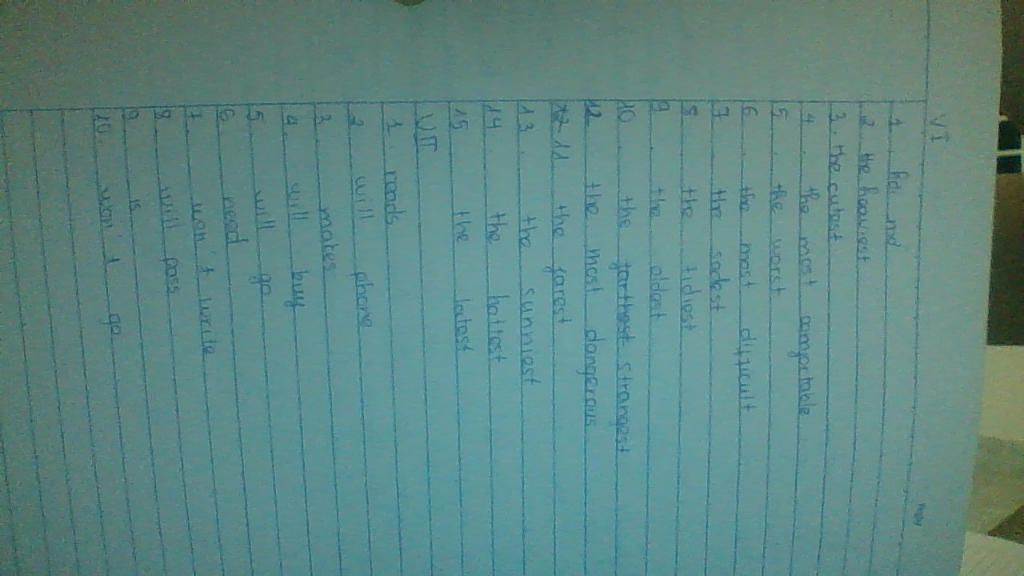 VI
1.
2. the heaviest
3. the cutest
4. the most comfortable
5. the worst
6. the most difficult
7. the sadest
8. the tidiest
9. the oldest
10. the farthest strangest
12. the most dangerous
12 11 the farest
13. the sunniest
14. the hottest
15 the latest
VII
1. reads
2. will phone
3 makes
4. will buy
5. will go
6 need
7. won't write
8. will pass
9 is
10. won't go